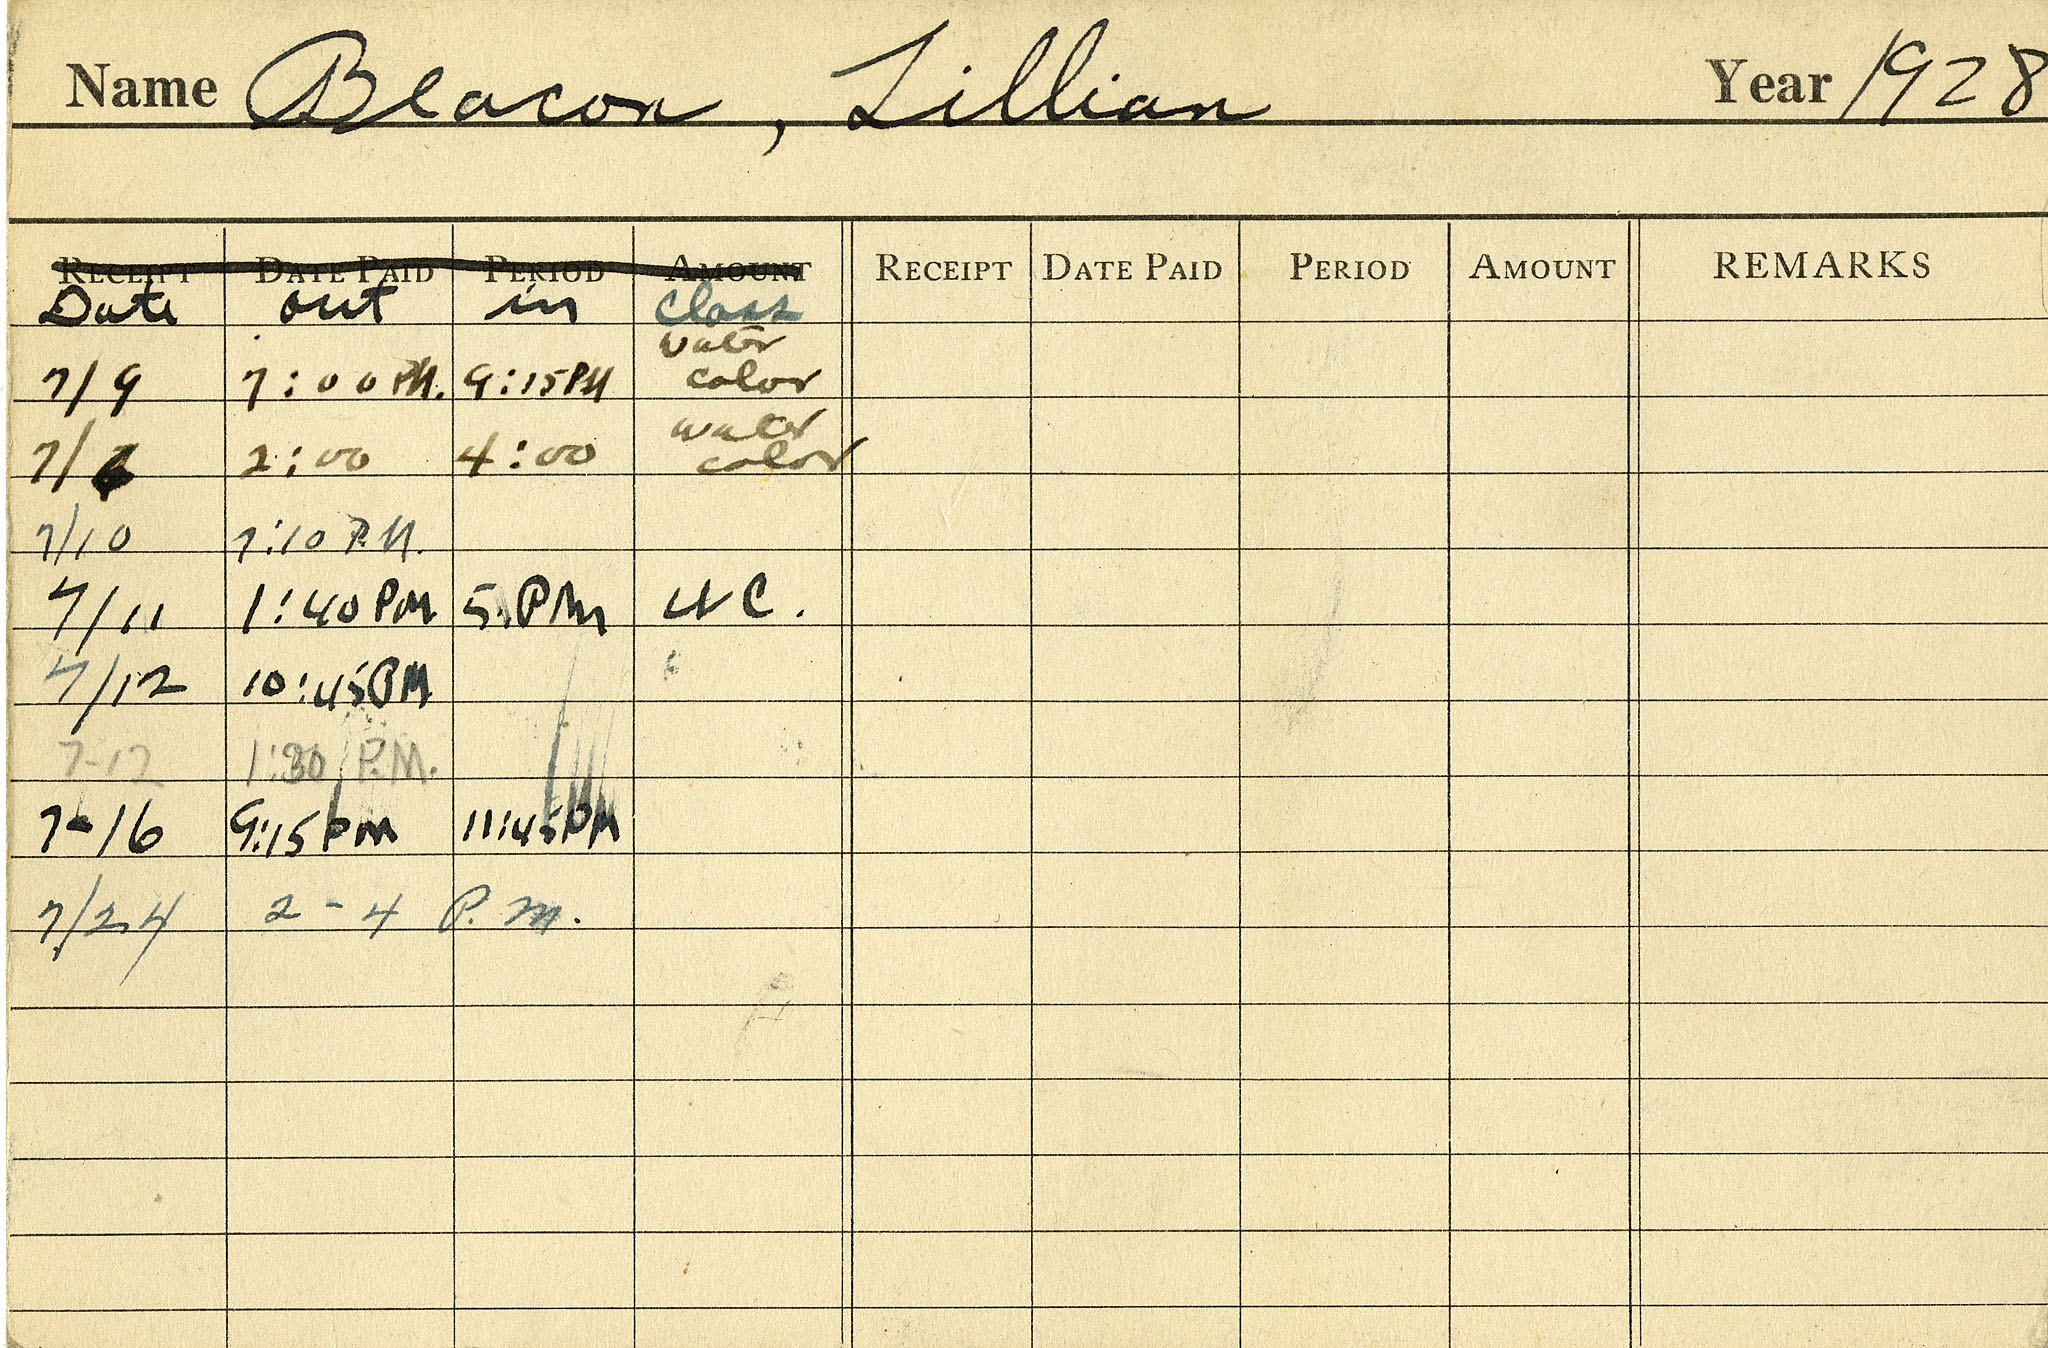 Name Blacon, Lillian Year 1928
RECEIPT DATE PAID PERIOD AMOUNT RECEIPT DATE PAID PERIOD AMOUNT REMARKS
Date out in class
water
7/9 7:00 PM. 9:15 PM color
water
7/6 2:00 4:00 color
7/10 7:10 P.M.
7/11 1:40 PM 5. PM WC.
7/12 10:45 PM
7-12 1:30 P.M.
7-16 9:15 PM 11:45 PM
7/24 2-4 P.M.